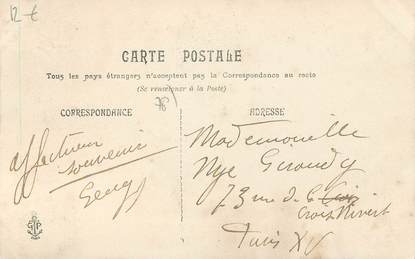 12 €
CARTE POSTALE
Tous les pays étrangers n'acceptent pas la Correspondance au recto
(Se renseigner à la Poste)
CORRESPONDANCE
affectueux
souvenir
ADRESSE
Mademoiselle
73 rue de la Croix
Croix Nivert
Paris XV